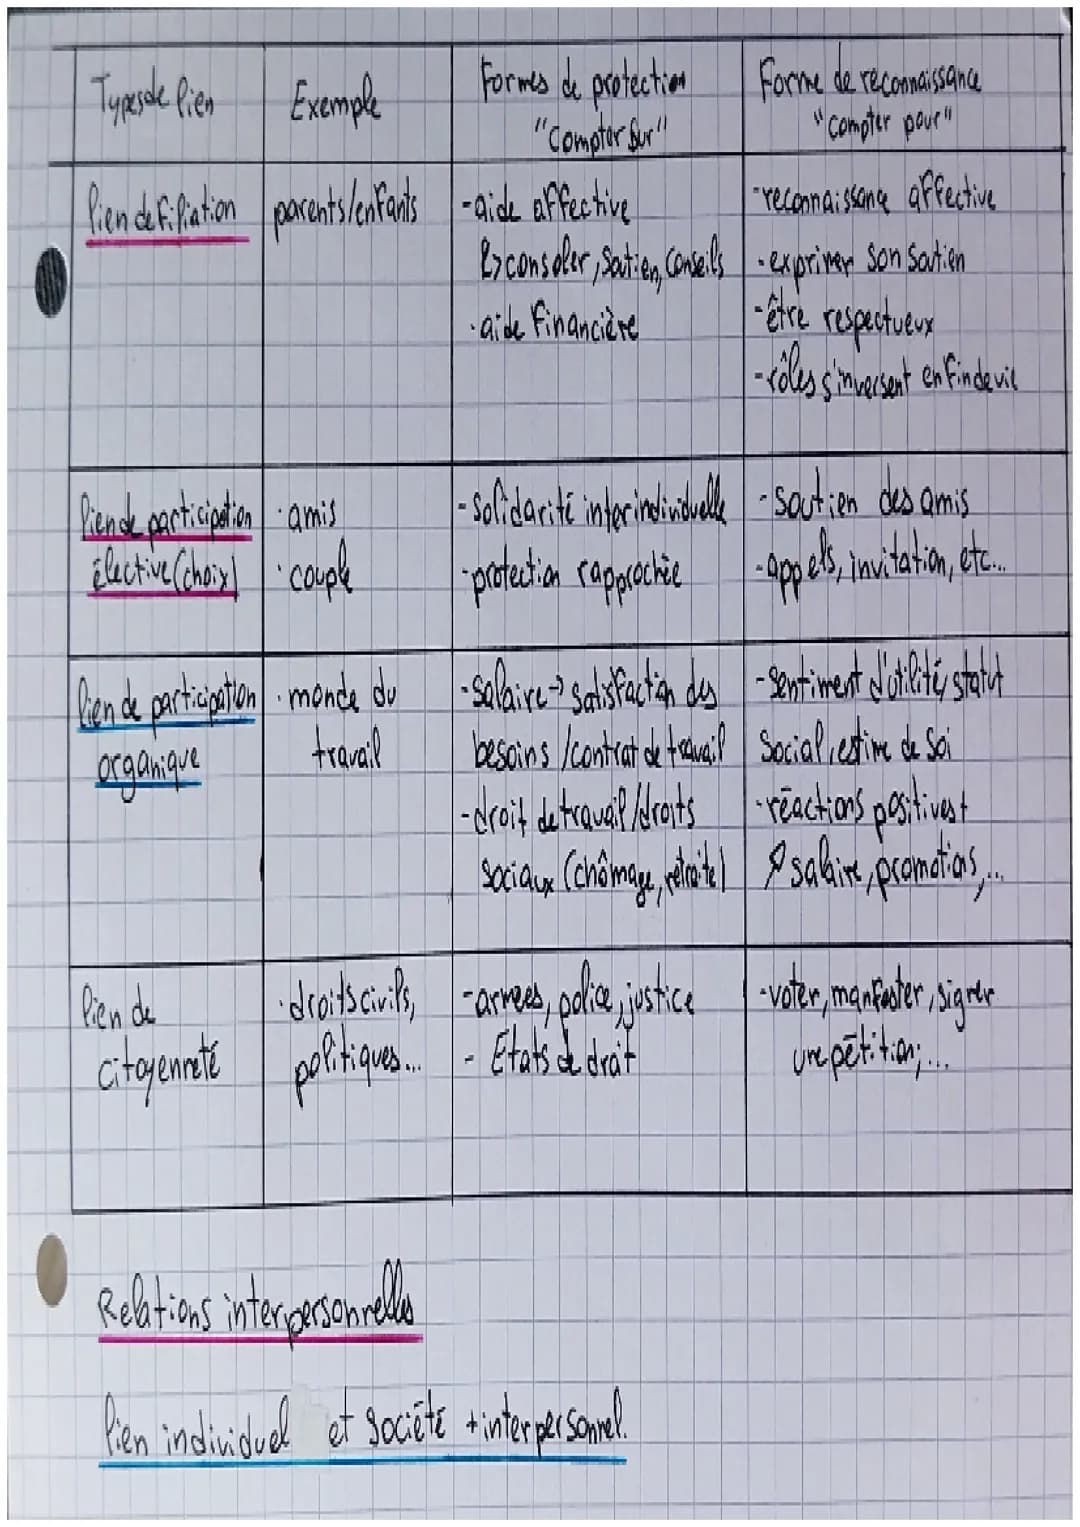 Types de lien
Exemple
Formes de protection
"Compter sur"
Forme de reconnaissance
"compter pour"
lien de filiation
parents/enfants
-aide affective
↳consoler, Soutien, Conseils
-aide financière
-reconnaissance affective
-exprimer son soutien
-être respectueux
-rôles s'inversent en fin de vie
lien de participation
élective (choix)
·amis
·couple
-Solidarité interindividuelle
-protection rapprochée
-Soutien des amis
-appels, invitation, etc...
lien de participation
organique
·monde du
travail
-Salaire→ satisfaction des
besoins /contrat de travail
-droit de travail/droits
Sociaux (chômage, retraite)
-Sentiment d'utilité, statut
Social, estime de Soi
-réactions positives +
↗ salaire, promotions,...
lien de
citoyenneté
·droits civils,
politiques...
-armées, police, justice
- États de droit
-voter, manifester, signer
une pétition;...
Relations interpersonnelles
lien individuel et Société + interpersonnel.